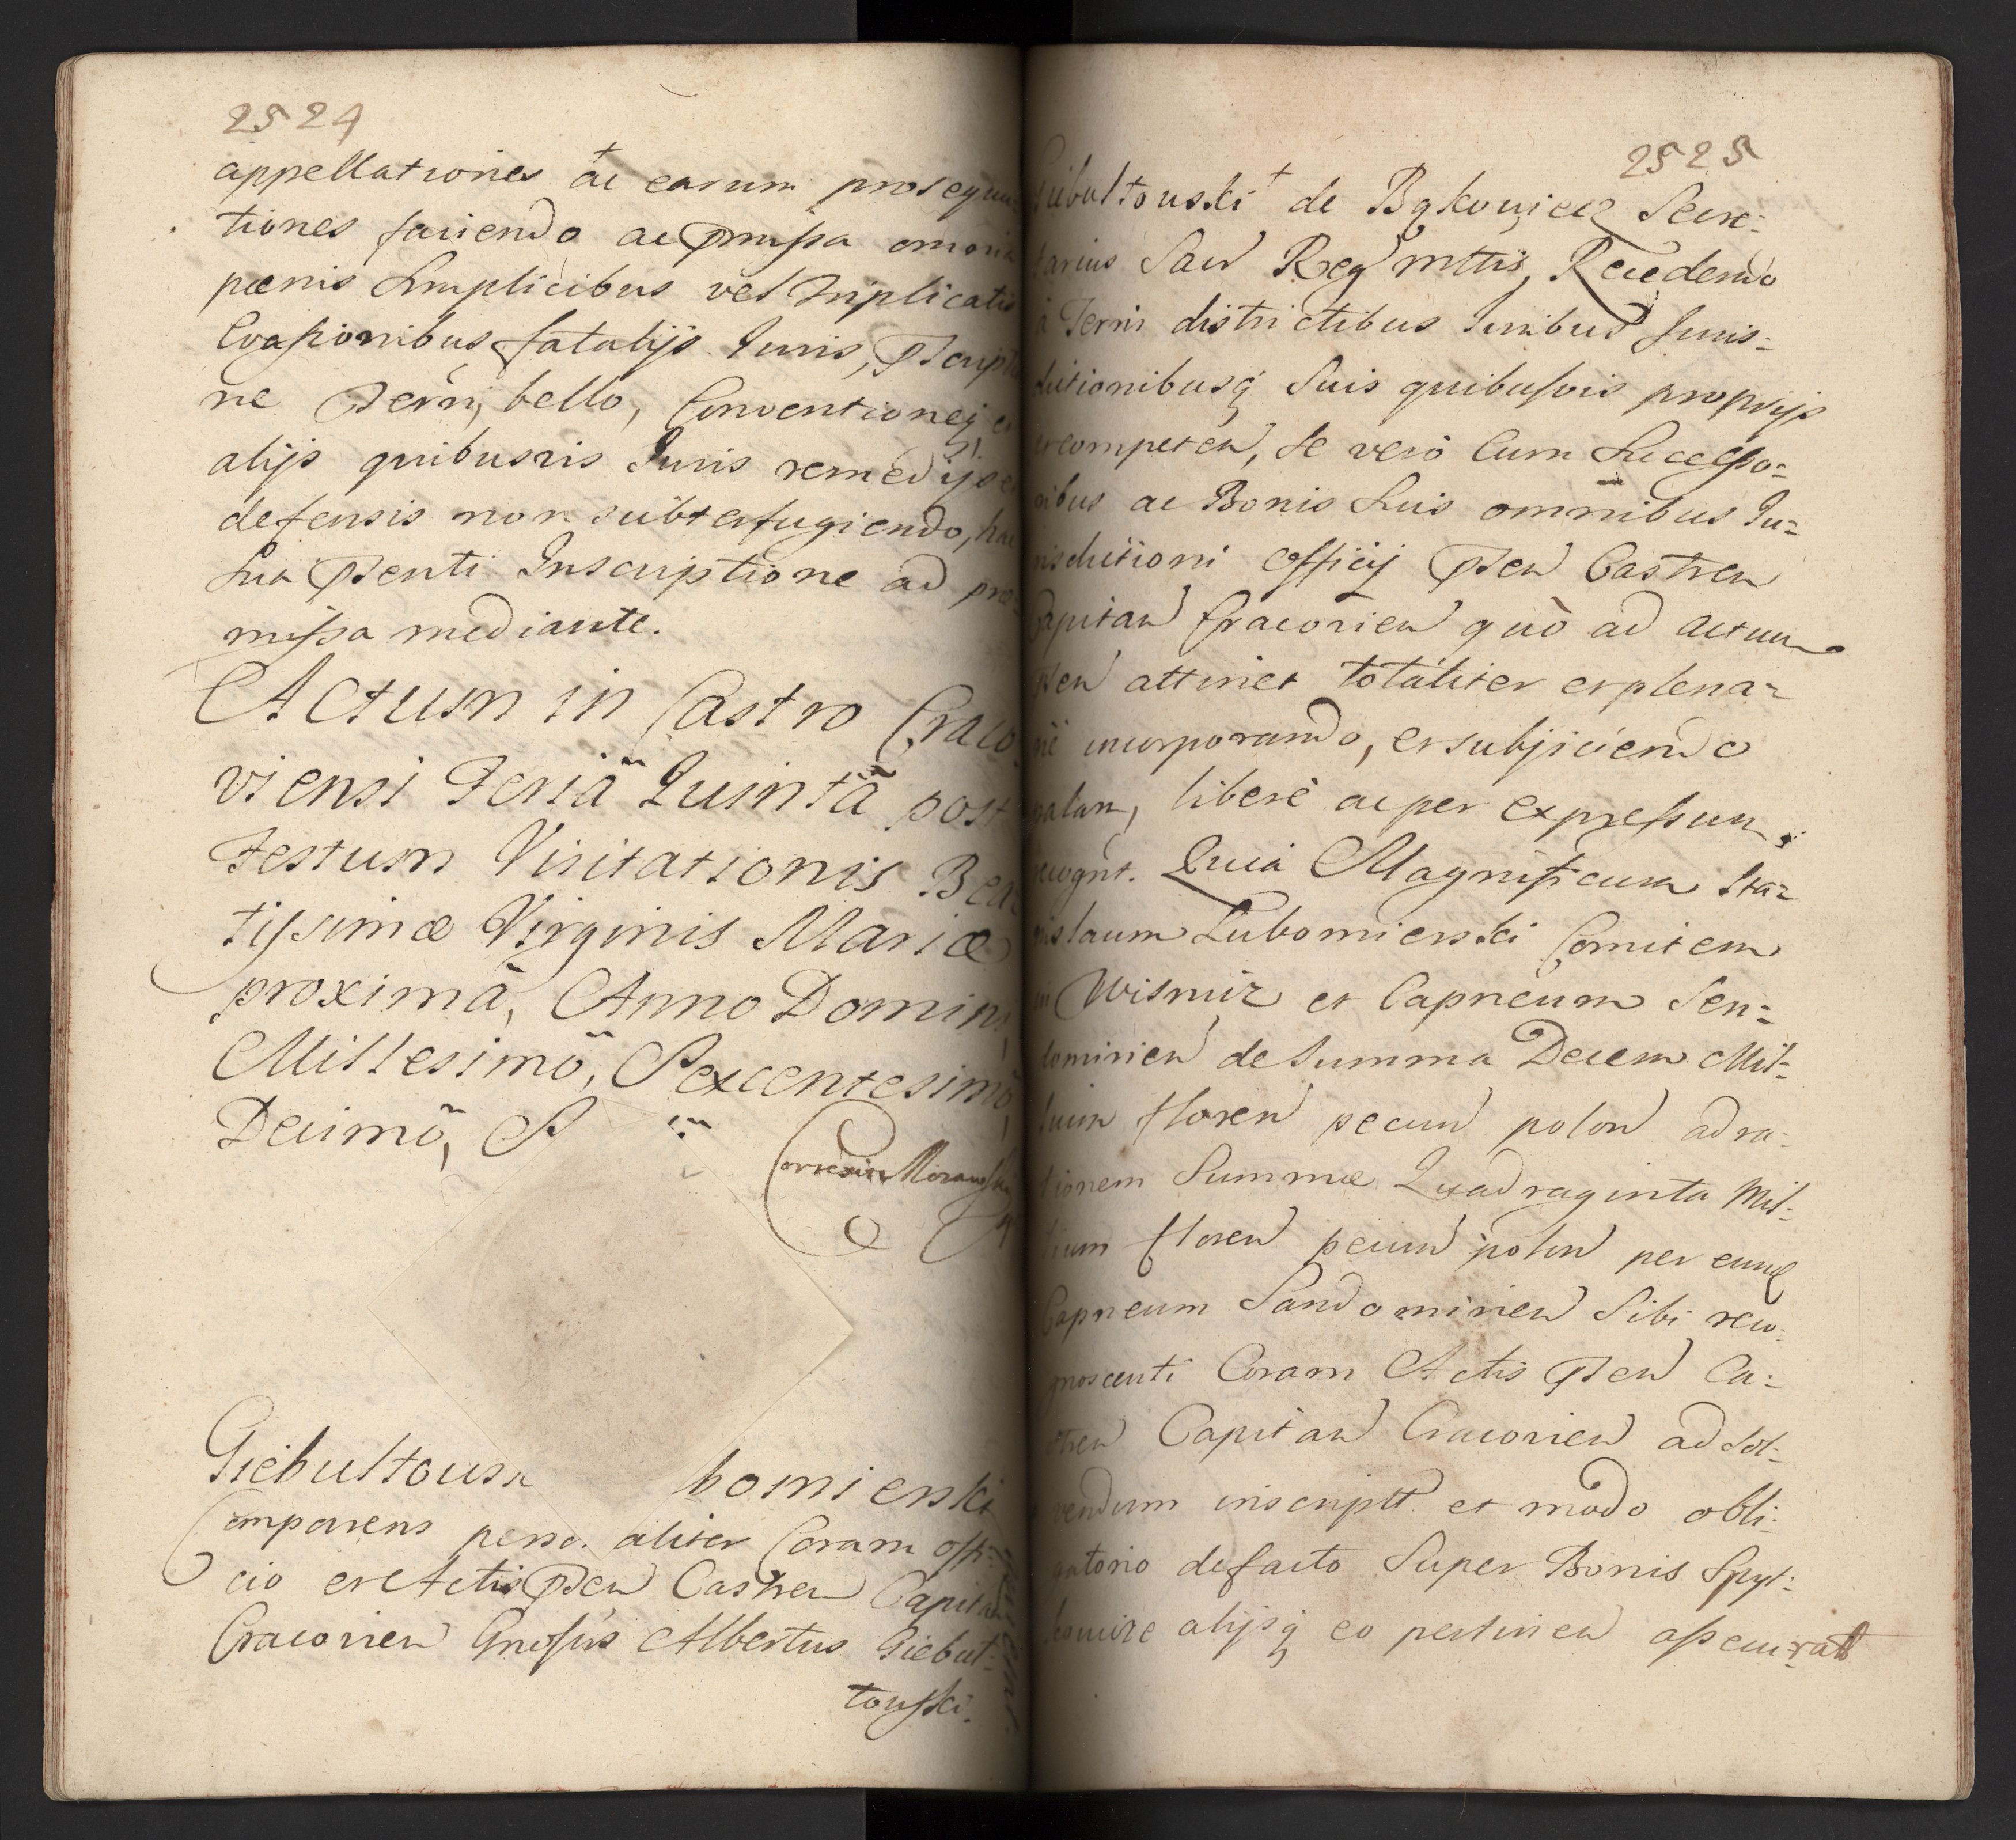 2524
appellationes ac earum prosequu-
tiones faciendo ac pmissa omnia
pœnis simplicibus vel triplicatis
Evasionibus, fatalijs Iuris, pscriptio
ne terrń, bello, Conventioneq, et
alijs quibusvis Iuris remedijs et
defensis non subterfugiendo, hac
sua psenti Inscriptione ad præ-
missa mediante.
Actum in Castro Craco
viensi Feriâ Quintâ post
Festum Visitationis Bea
tissimæ Virginis Mariæ
proximâ, Anno Domini
Millesimô, Sexcentesimô,
Decimô, S
Correxit Morawski
Giebultousk bomierski
Comparens perso aliter Coram offi-
cio et Actis psen Castren Capitan
Cracovien Gnosus Albertus Giebul-
touski.
2525
Giebultouski de Bąkowiecz Secre-
tarius Sacr Reg mttis, Recedendo
à Terris districtibus Iuribus Iuris-
dictionibusq suis quibusvis proprijs
et competen, se verò Cum Successo-
ribus ac Bonis suis omnibus Iu-
risdictioni officij psen Castren
Capitan Cracovien quò ad actum
psen attinet totaliter et plena-
riè incorporando, et subjiciendo
palam, liberè ac per expressum
recognt. Quia Magnificum Sta-
nislaum Lubomierski Comitem
in Wisnicz et Capneum San-
domirien de Summa Decem Mil-
lium floren pecun polon ad ra-
tionem Summæ Quadraginta Mil-
lium floren pecun polon per eund
Capneum Sandomirien sibi reco-
gnoscenti Coram Actis psen Ca-
stren Capitan Cracovien ad sol-
vendum inscriptt et modo obli-
gatorio defacto Super Bonis Spyt-
kowice alijsq eo pertinen assecurat